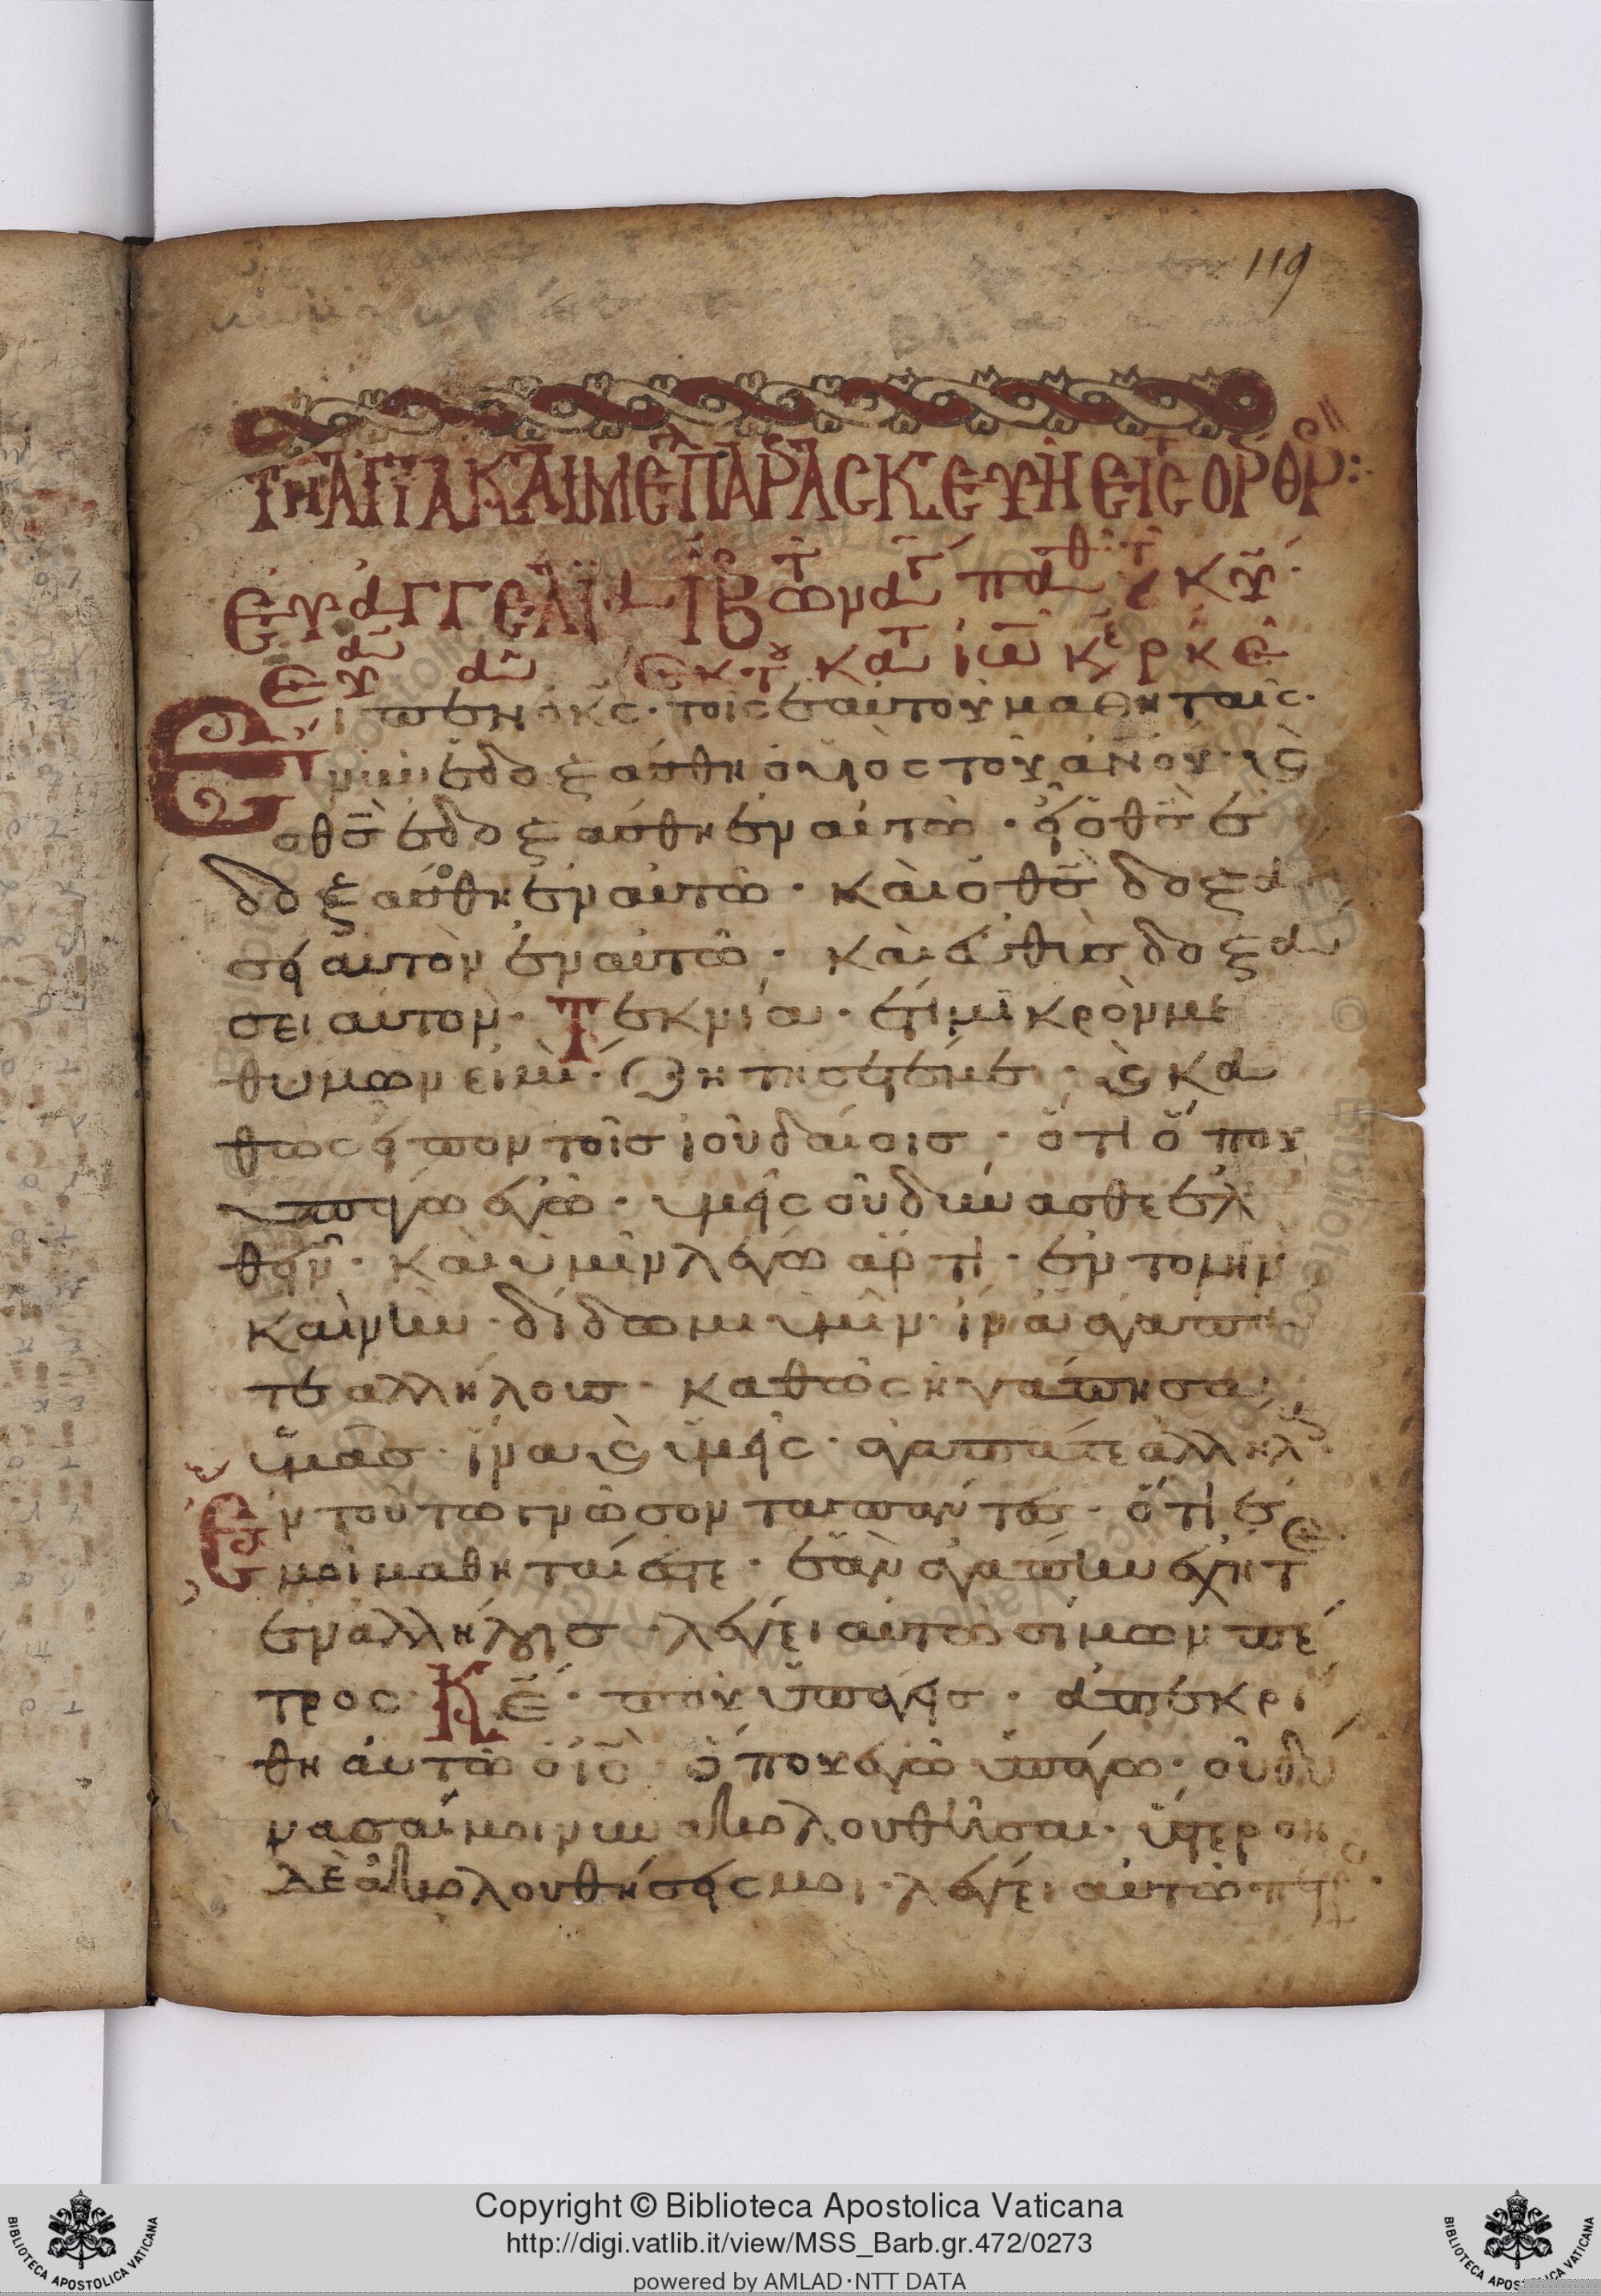 119
ΤΗ ΑΓΙΑ ΚΑΙ ΜΕ ΠΑΡΑΣΚΕΥΗ ΕΙΣ ΟΡΘΡ:
ΕΥΑΓΓΕΛΙΑ ΙΒ
ΕΥ Α ΕΚ Τ ΚΑΤ ΙΩ
Είπεν ὁ κς· τοῖς ἑαυτοῦ μαθηταῖς·
νῦν ἐδοξάσθη ὁ υἱὸς τοῦ ἀνου· κ
ὁ θς ἐδοξάσθη ἐν αὐτῶ· εἰ ὁ θς ἐ
δοξάσθη ἐν αὐτῶ· καὶ ὁ θς δοξά
σει αὐτὸν ἐν αὐτῶ· καὶ εὐθὺς δοξά
σει αὐτόν· Τεκνία· ἔτι μικρὸν με
θυμων εἰμὶ· ζητησετέ με· κ κα
θως εἰπον τοῖς ἰουδαίοις· ὅτι ὅπου
ὑπαγω ἐγὼ· ὑμεῖς οὐ δύνασθε ἐλ
θεῖν· καὶ ὑμῖν λέγω ἄρτι· ἐντολὴν
καινὴν· δίδωμι ὑμῖν· ἵνα ἀγαπᾶ
τε ἀλλήλους· καθὼς ἠγάπησα
ὑμᾶς· ἵνα κ ὑμεῖς· ἀγαπᾶτε ἀλλήλ
Ἐν τούτω γνώσονται πάντες· ὅτι ἐ
μοὶ μαθηταί ἐστε· ἐὰν ἀγάπην ἔχητε
ἐν ἀλλήλοις· λέγει αὐτῶ σίμων πέ
τρος· Κε· ποῦ ὑπάγεις· ἀπεκρί
θη αὐτῶ ὁ ις· ὅπου ἐγὼ ὑπάγω· οὐ δύ
νασαί μοι νῦν ἀκολουθῆσαι· ὕστερον
δὲ ἀκολουθήσεις μοι· λέγει αὐτῶ
Copyright © Biblioteca Apostolica Vaticana
http://digi.vatlib.it/view/MSS_Barb.gr.472/0273
powered by AMLAD·NTT DATA
BIBLIOTECA APOSTOLICA VATICANA
BIBLIOTECA APOSTOLICA VATICANA